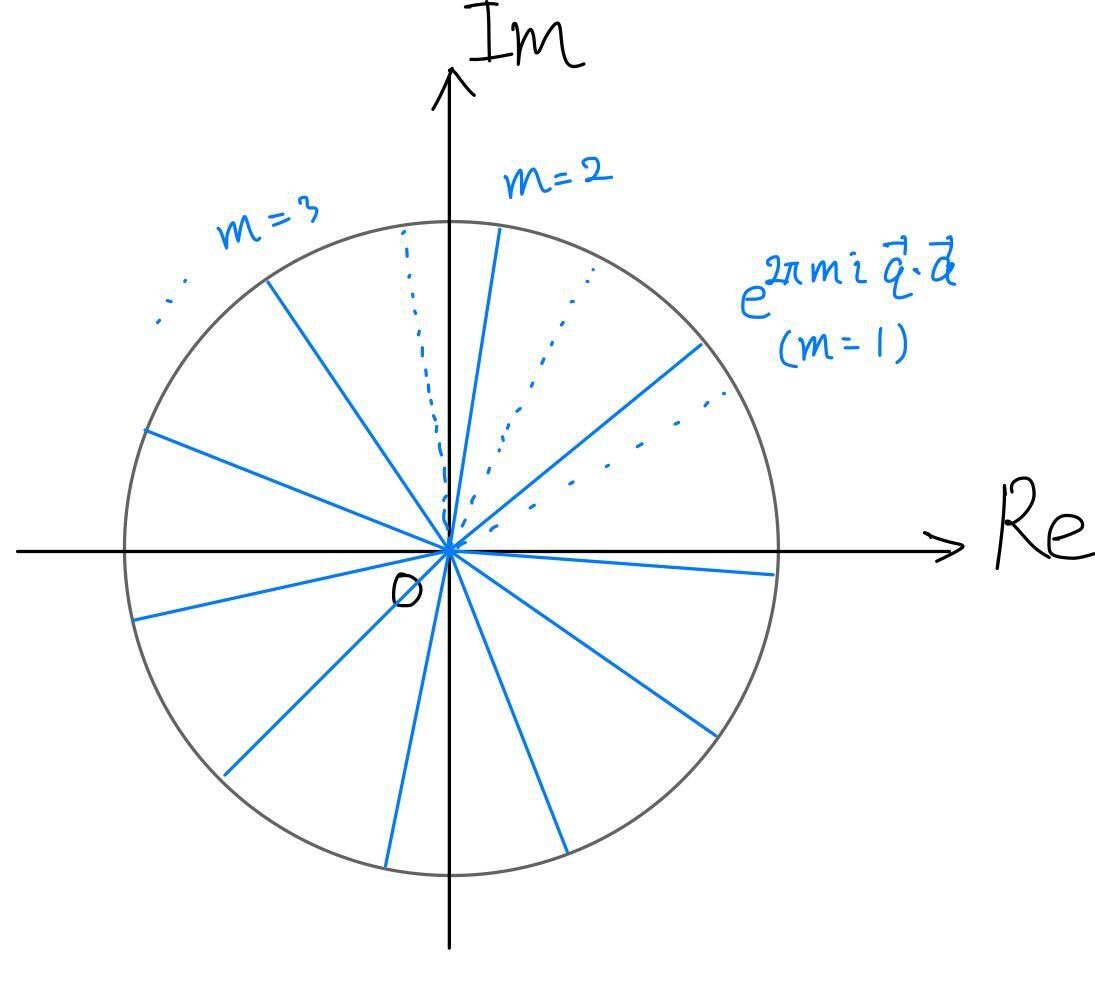 Im
m=2
m=3
e^{2πmi \vec{q}·\vec{a}}
(m=1)
Re
O